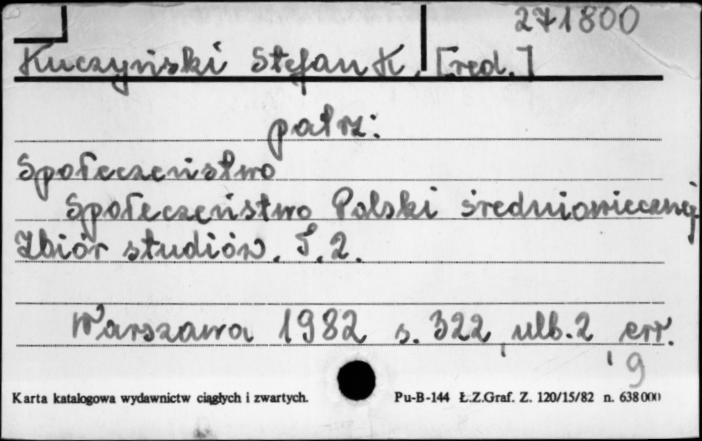 271800
Kuczyński Stefan K. [red.]
patrz:
Społeczeństwo
Społeczeństwo Polski średniowiecznej
Zbiór studiów. T. 2.
Warszawa 1982 s. 322, ulb. 2, err.
9
Karta katalogowa wydawnictw ciągłych i zwartych. Pu-B-144 Ł.Z.Graf. Z. 120/15/82 n. 638000